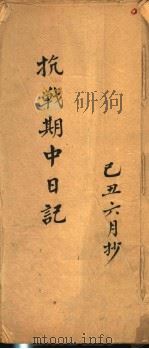 抗戰期中日記
己丑六月抄